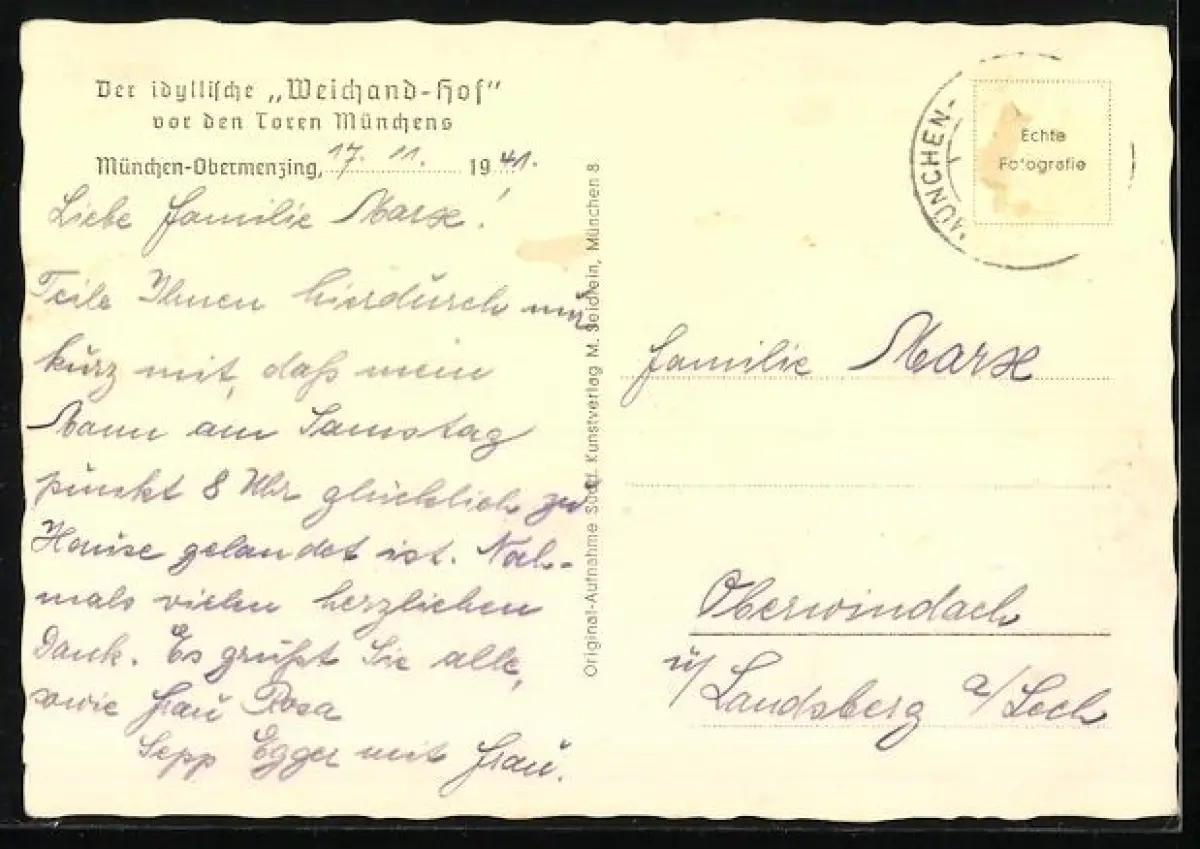 Der idyllische „Weichand-Hof"
vor den Toren Münchens
München-Obermenzing, 17. 11. 1941.
Liebe Familie Marx!
Teile Ihnen hierdurch nur
kurz mit, daß mein
Mann am Samstag
punkt 8 Uhr glücklich zu
Hause gelandet ist. Noch-
mals vielen herzlichen
Dank. Es grüßt Sie alle,
sowie Frau Rosa
Sepp Egger mit Frau.
Original-Aufnahme Südd. Kunstverlag M. Seidlein, München 8
MÜNCHEN-
Echte
Fotografie
Familie Marx
Oberwindach
ü/Landsberg a/Lech